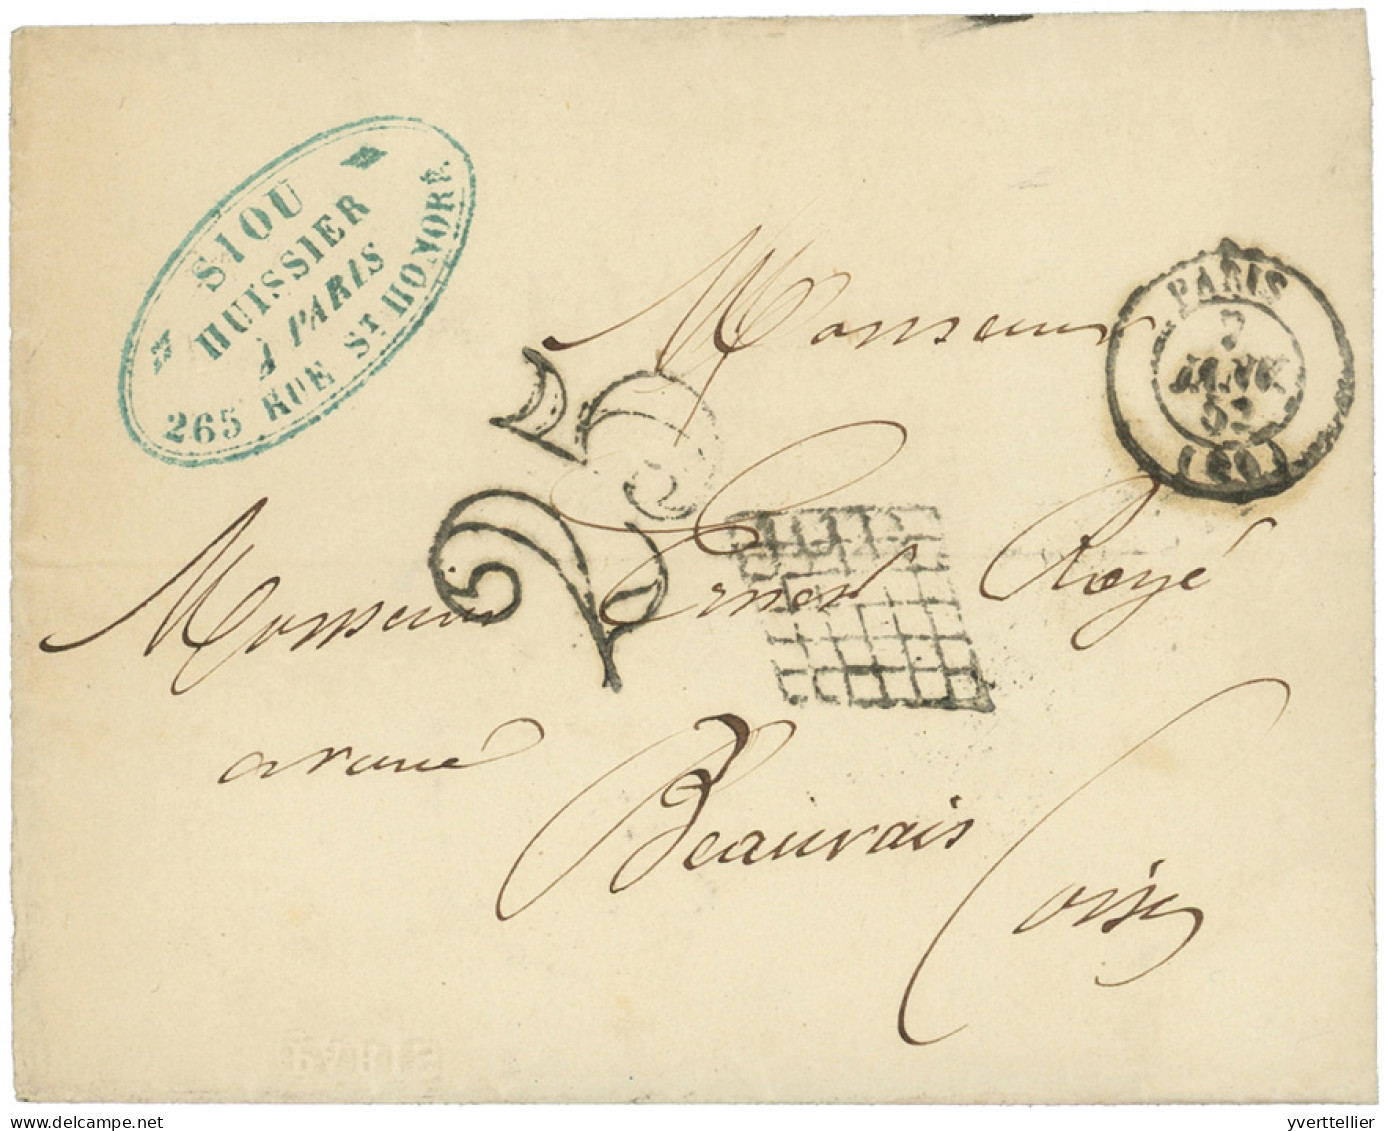 SIOU
HUISSIER
À PARIS
265 RUE ST HONORÉ.
PARIS
7
JANV.
52
(60)
25
Monsieur
Monsieur Ernest Royé
avoué
Beauvais
(oise)
delcampe.net
yverttellier